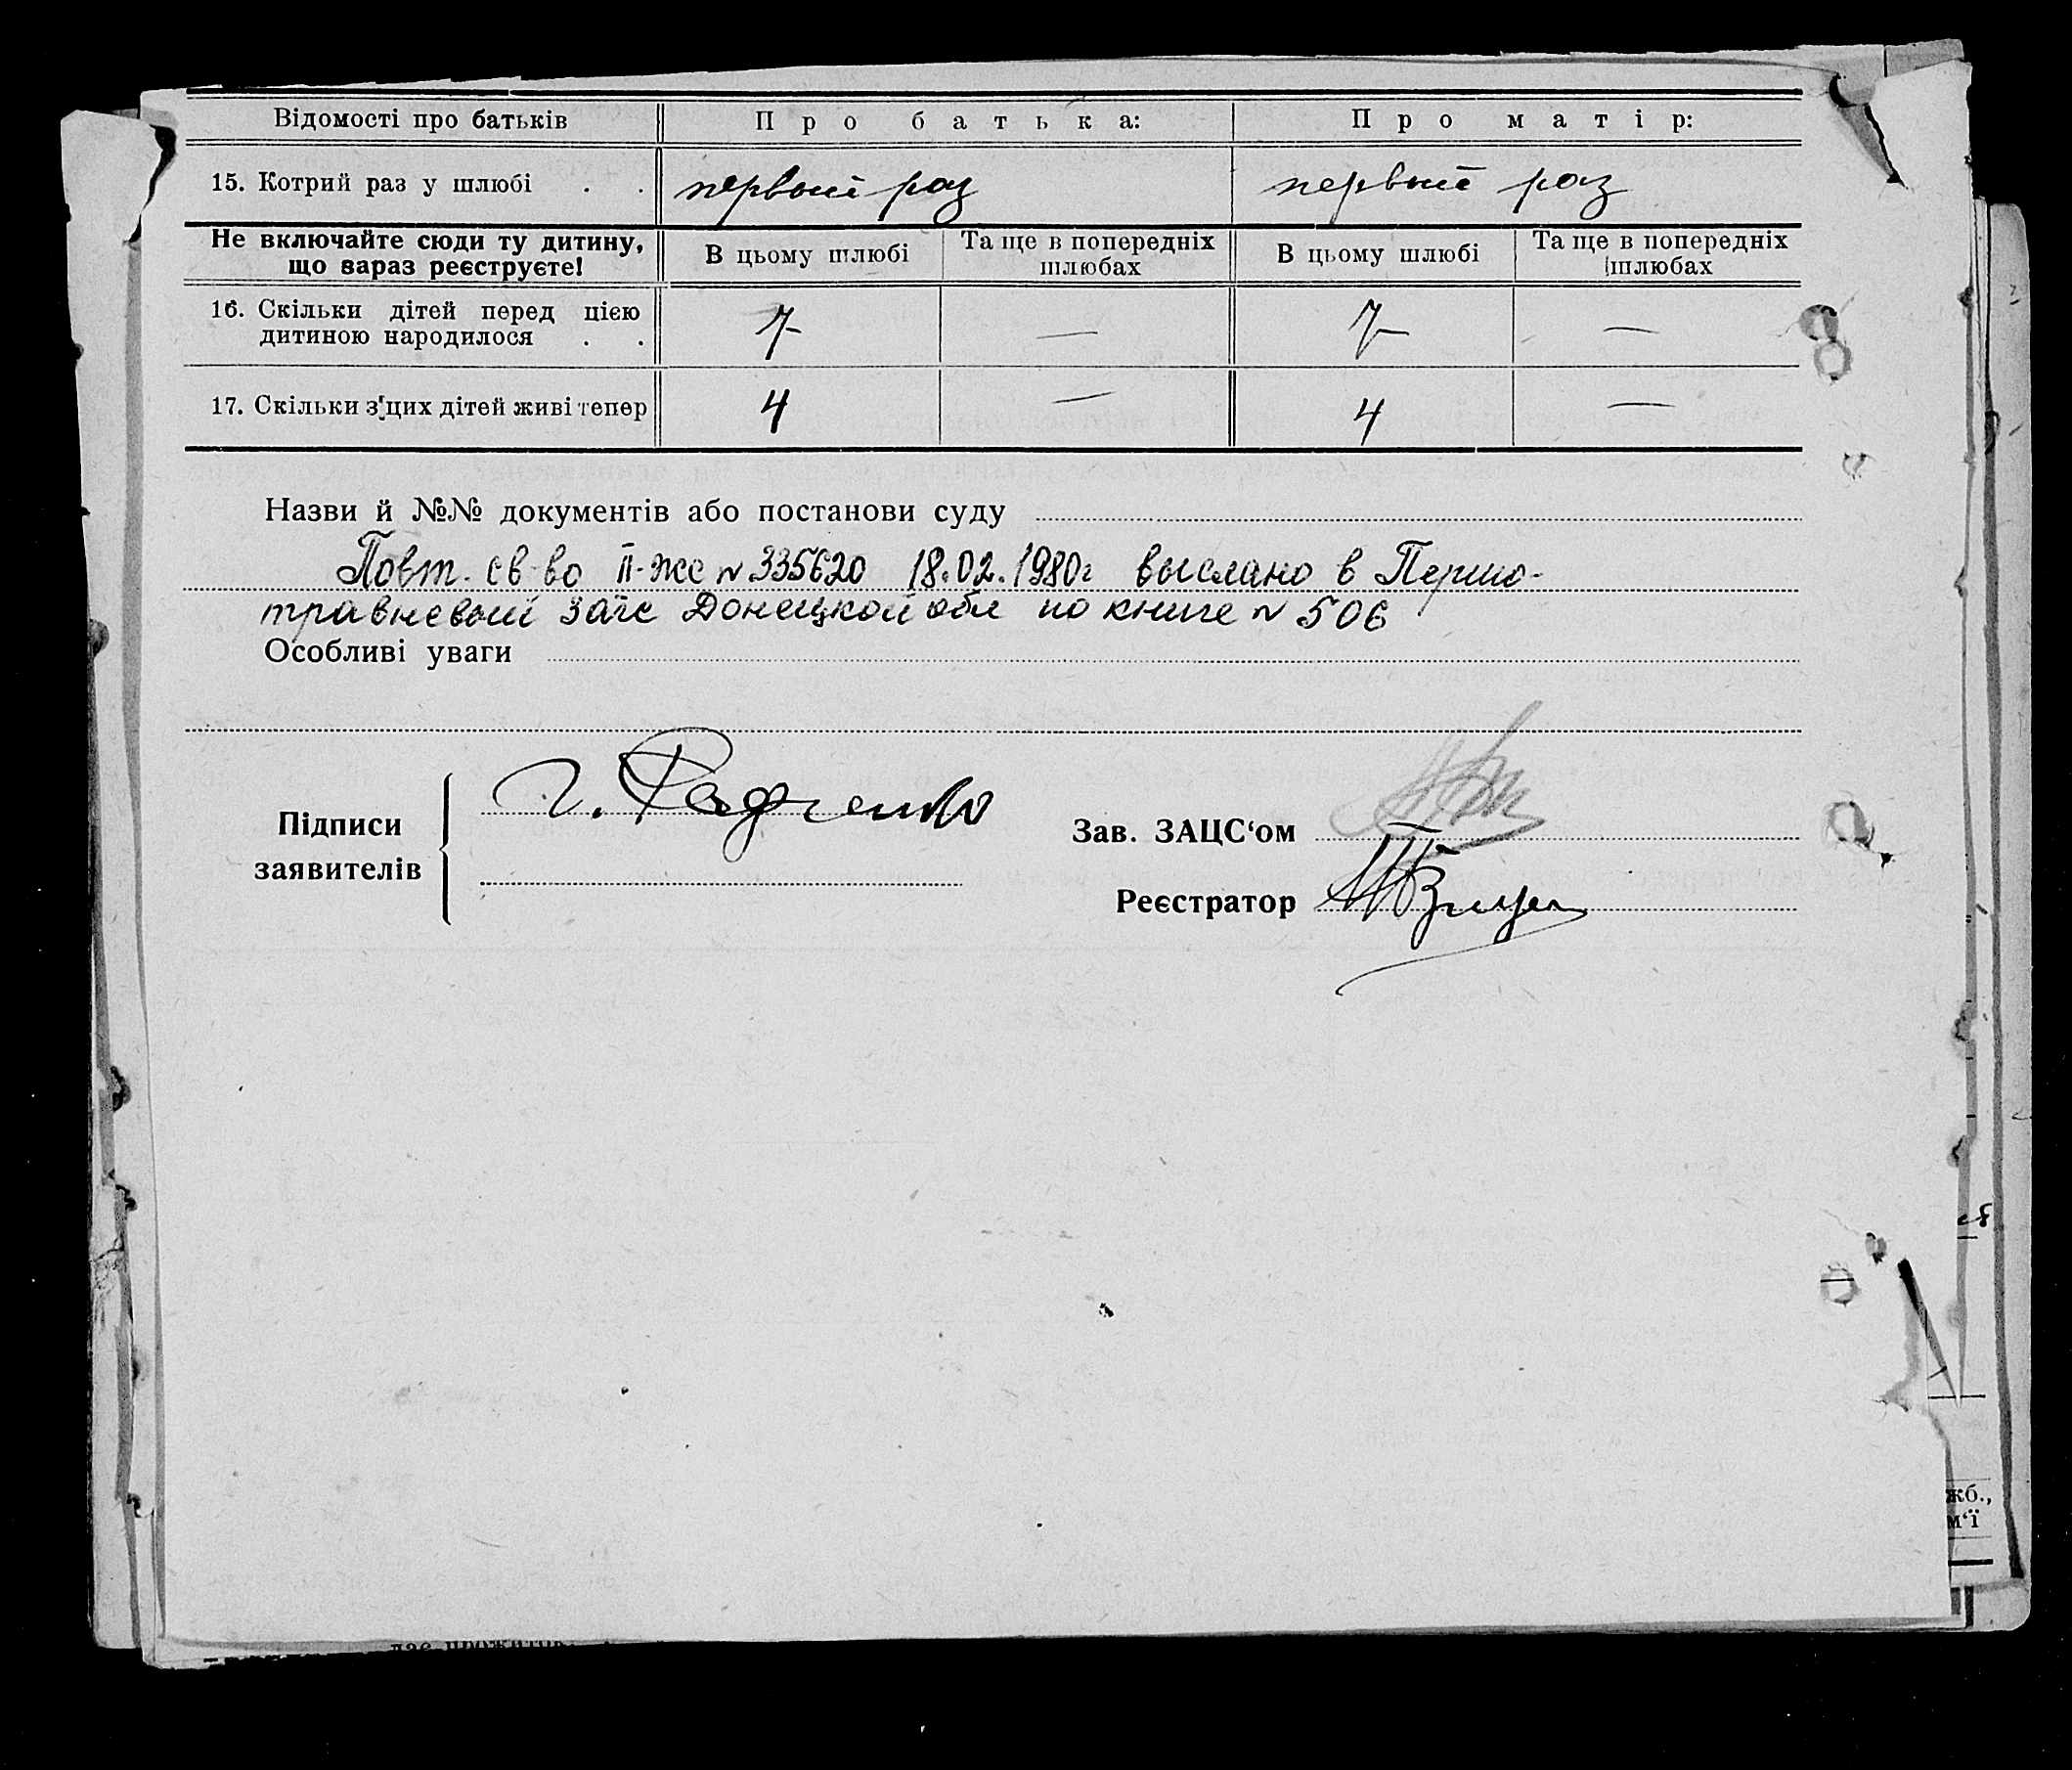 Відомості про батьків Про батька: Про матір:
15. Котрий раз у шлюбі . . первый раз первый раз
Не включайте сюди ту дитину, що зараз реєструєте! В цьому шлюбі Та ще в попередніх шлюбах В цьому шлюбі Та ще в попередніх шлюбах
16. Скільки дітей перед цією дитиною народилося . . 7 — 7 —
17. Скільки з цих дітей живі тепер 4 — 4 —
Назви й №№ документів або постанови суду
Повт. св-во II-жс N 335620 18.02.1980г выслано в Першо-
травневый загс Донецкой обл по книге N 506
Особливі уваги
Підписи заявителів
Г. Радченко
Зав. ЗАЦС‘ом
Реєстратор
жб.,
м‘ї